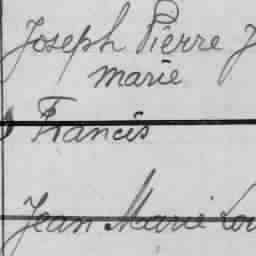 Joseph Pierre J
marie
Francis
Jean Marie Lou